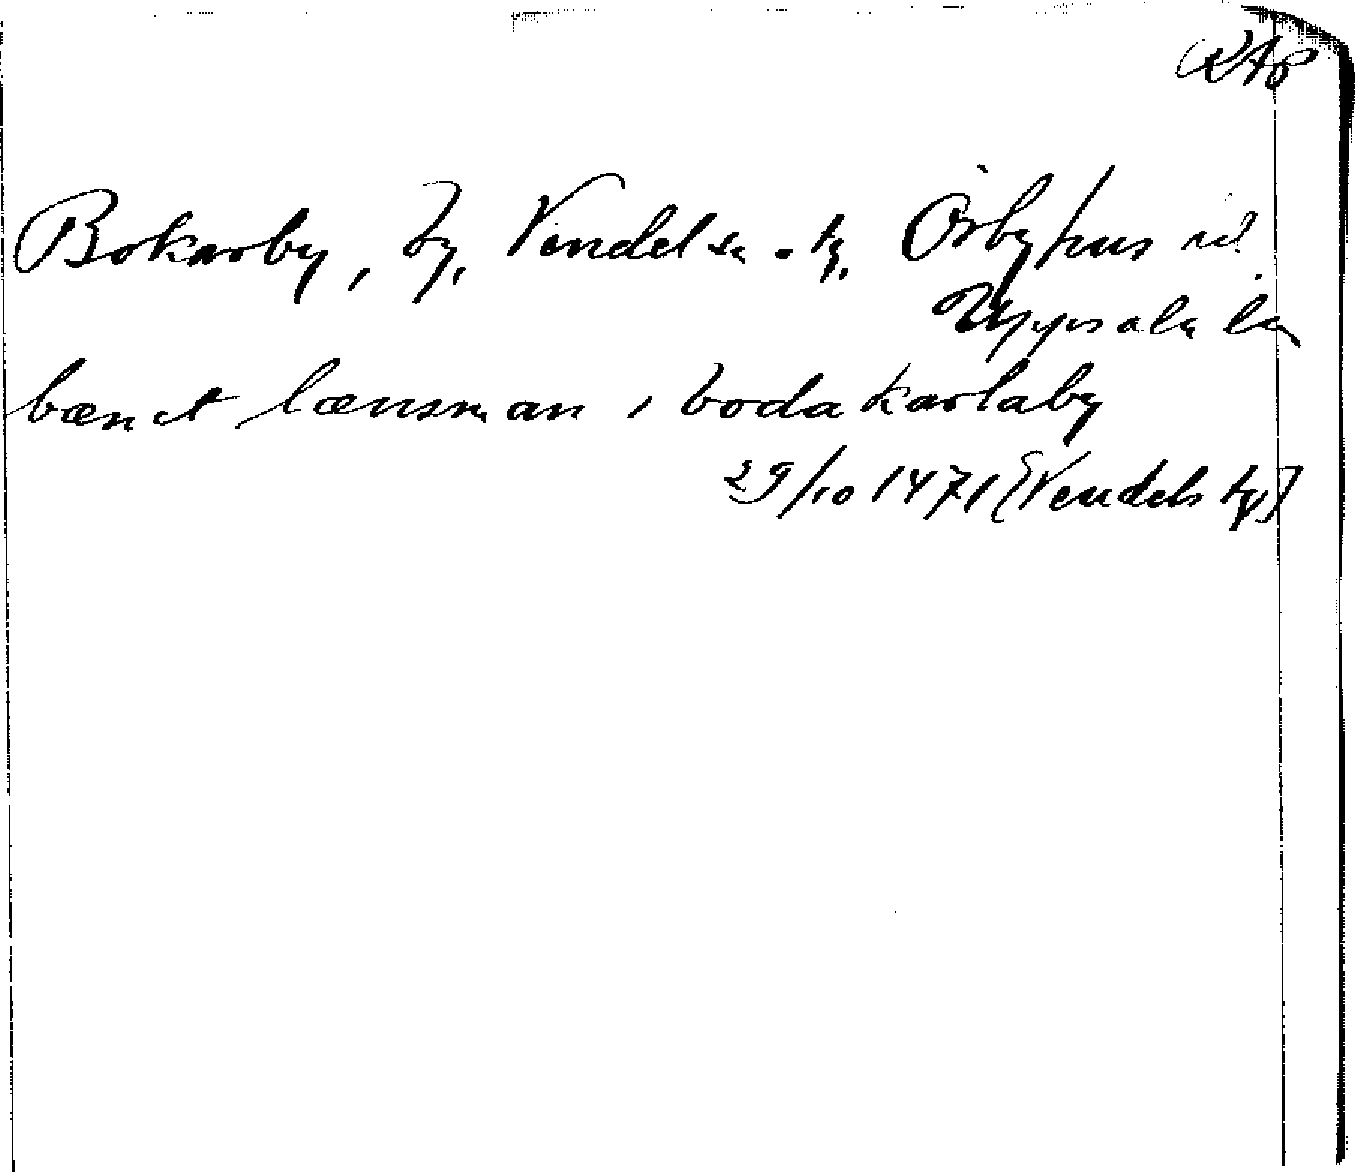 RAp
Bokarby, by, Vendels sn. o. tg. Örbyhus hd.
Uppsala län
bænct lænsman i bodakarlaby
29/10 1471 [Vendels tg]